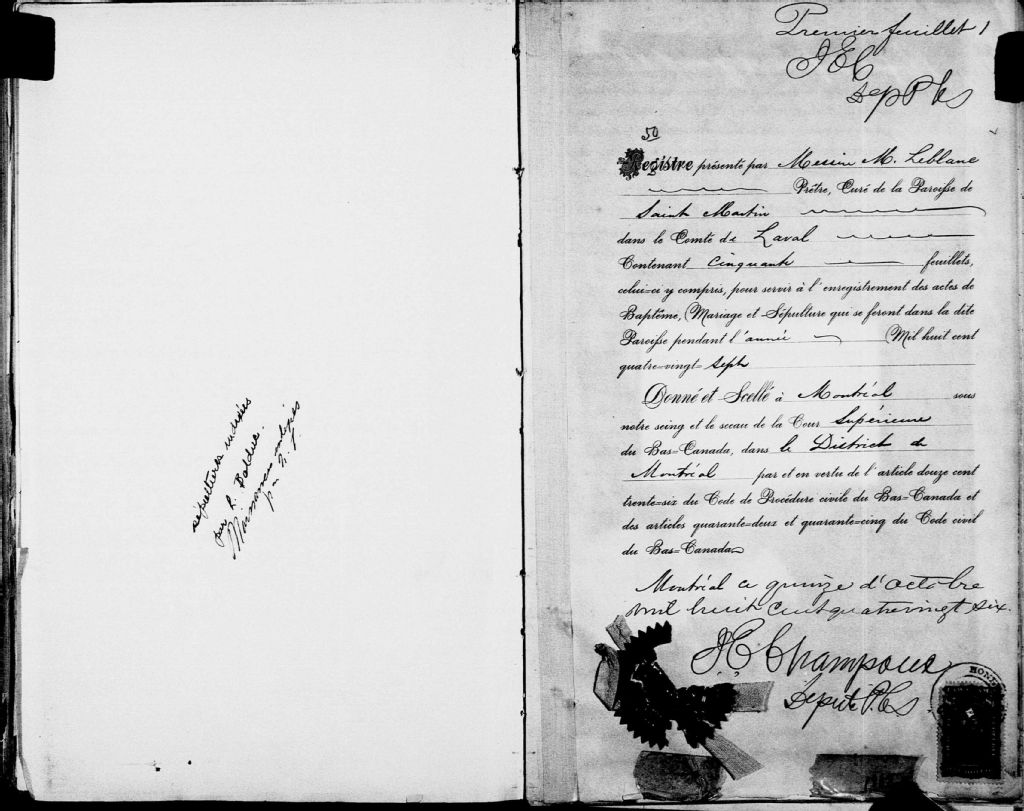 sépultures indexées
par R. Bolduc.
p. 2.
Premier feuillet 1
JEC
Dep P Cs
50
Registre présenté par Messire M. Leblanc
Prêtre, Curé de la Paroisse de
Saint Martin
dans le Comté de Laval
Contenant cinquante feuillets,
celui=ci y compris, pour servir à l'enregistrement des actes de
Baptême, Mariage et Sépulture qui se feront dans la dite
Paroisse pendant l'année Mil huit cent
quatre=vingt= sept
Donné et Scellé à Montréal sous
notre seing et le sceau de la Cour Supérieure
du Bas=Canada, dans le District de
Montréal par et en vertu de l'article douze cent
trente=six du Code de Procédure civile du Bas=Canada et
des articles quarante=deux et quarante=cinq du Code civil
du Bas=Canada
Montréal ce quinze d'octobre
mil huit cent quatrevingt six.
J.E. Champoux
Député P. Cs